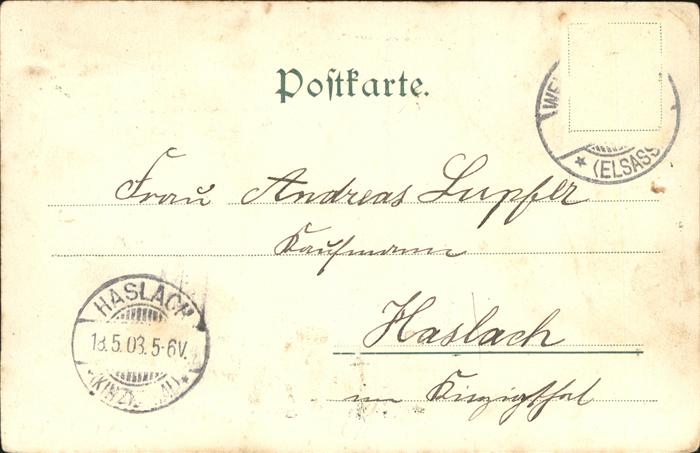 Postkarte.
(ELSASS
Frau Andreas Lupfer
Kaufmann
HASLACH
18.5.03.5-6V.
Haslach
im Kinzigthal